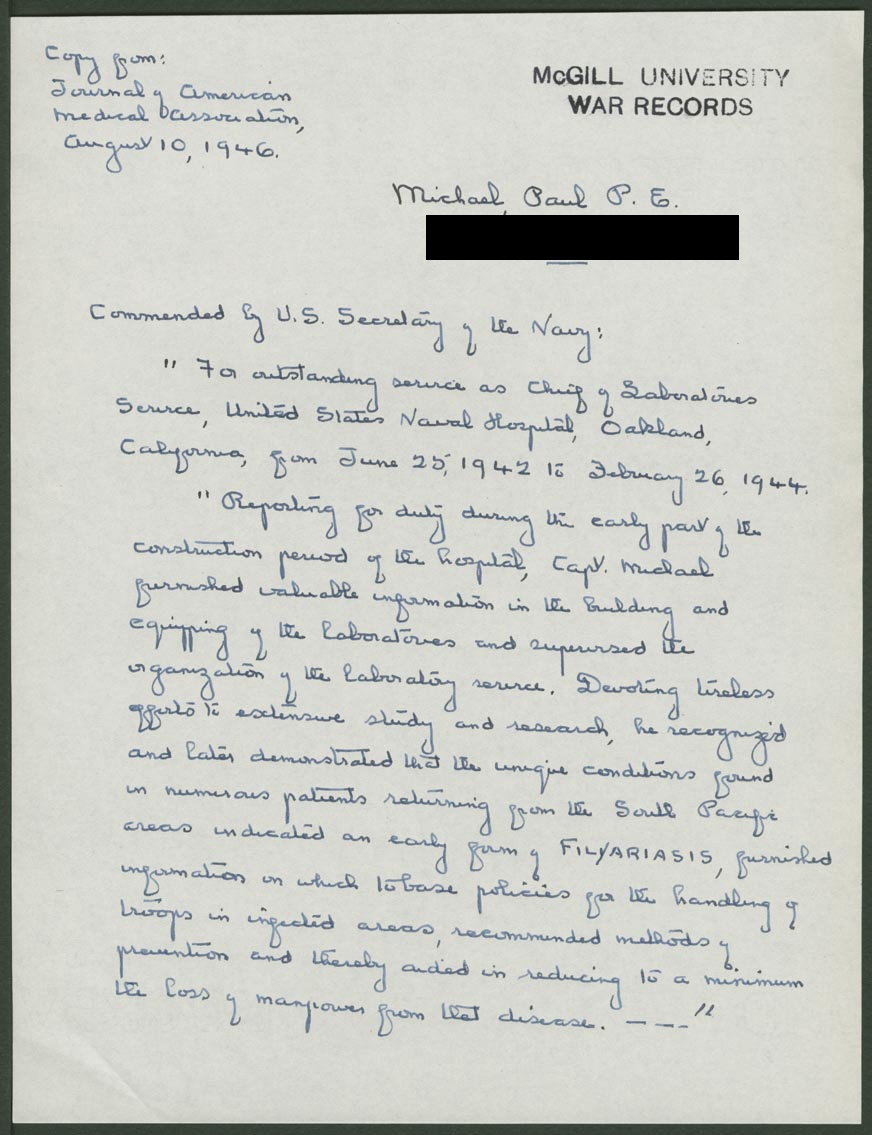 Copy from:
Journal of American
Medical Association,
August 10, 1946.
McGILL UNIVERSITY
WAR RECORDS
Michael, Paul P. E.
Commended by U.S. Secretary of the Navy:
" For outstanding service as Chief of Laboratories
Service, United States Naval Hospital, Oakland,
California, from June 25, 1942 to February 26, 1944.
" Reporting for duty during the early part of the
construction period of the hospital, Capt. Michael
furnished valuable information in the building and
equipping of the laboratories and supervised the
organization of the laboratory service. Devoting tireless
efforts to extensive study and research, he recognized
and later demonstrated that the unique conditions found
in numerous patients returning from the South Pacific
areas indicated an early form of FIL/ARIASIS, furnished
information on which to base policies for the handling of
troops in infected areas, recommended methods of
prevention and thereby aided in reducing to a minimum
the loss of manpower from that disease. — — — "